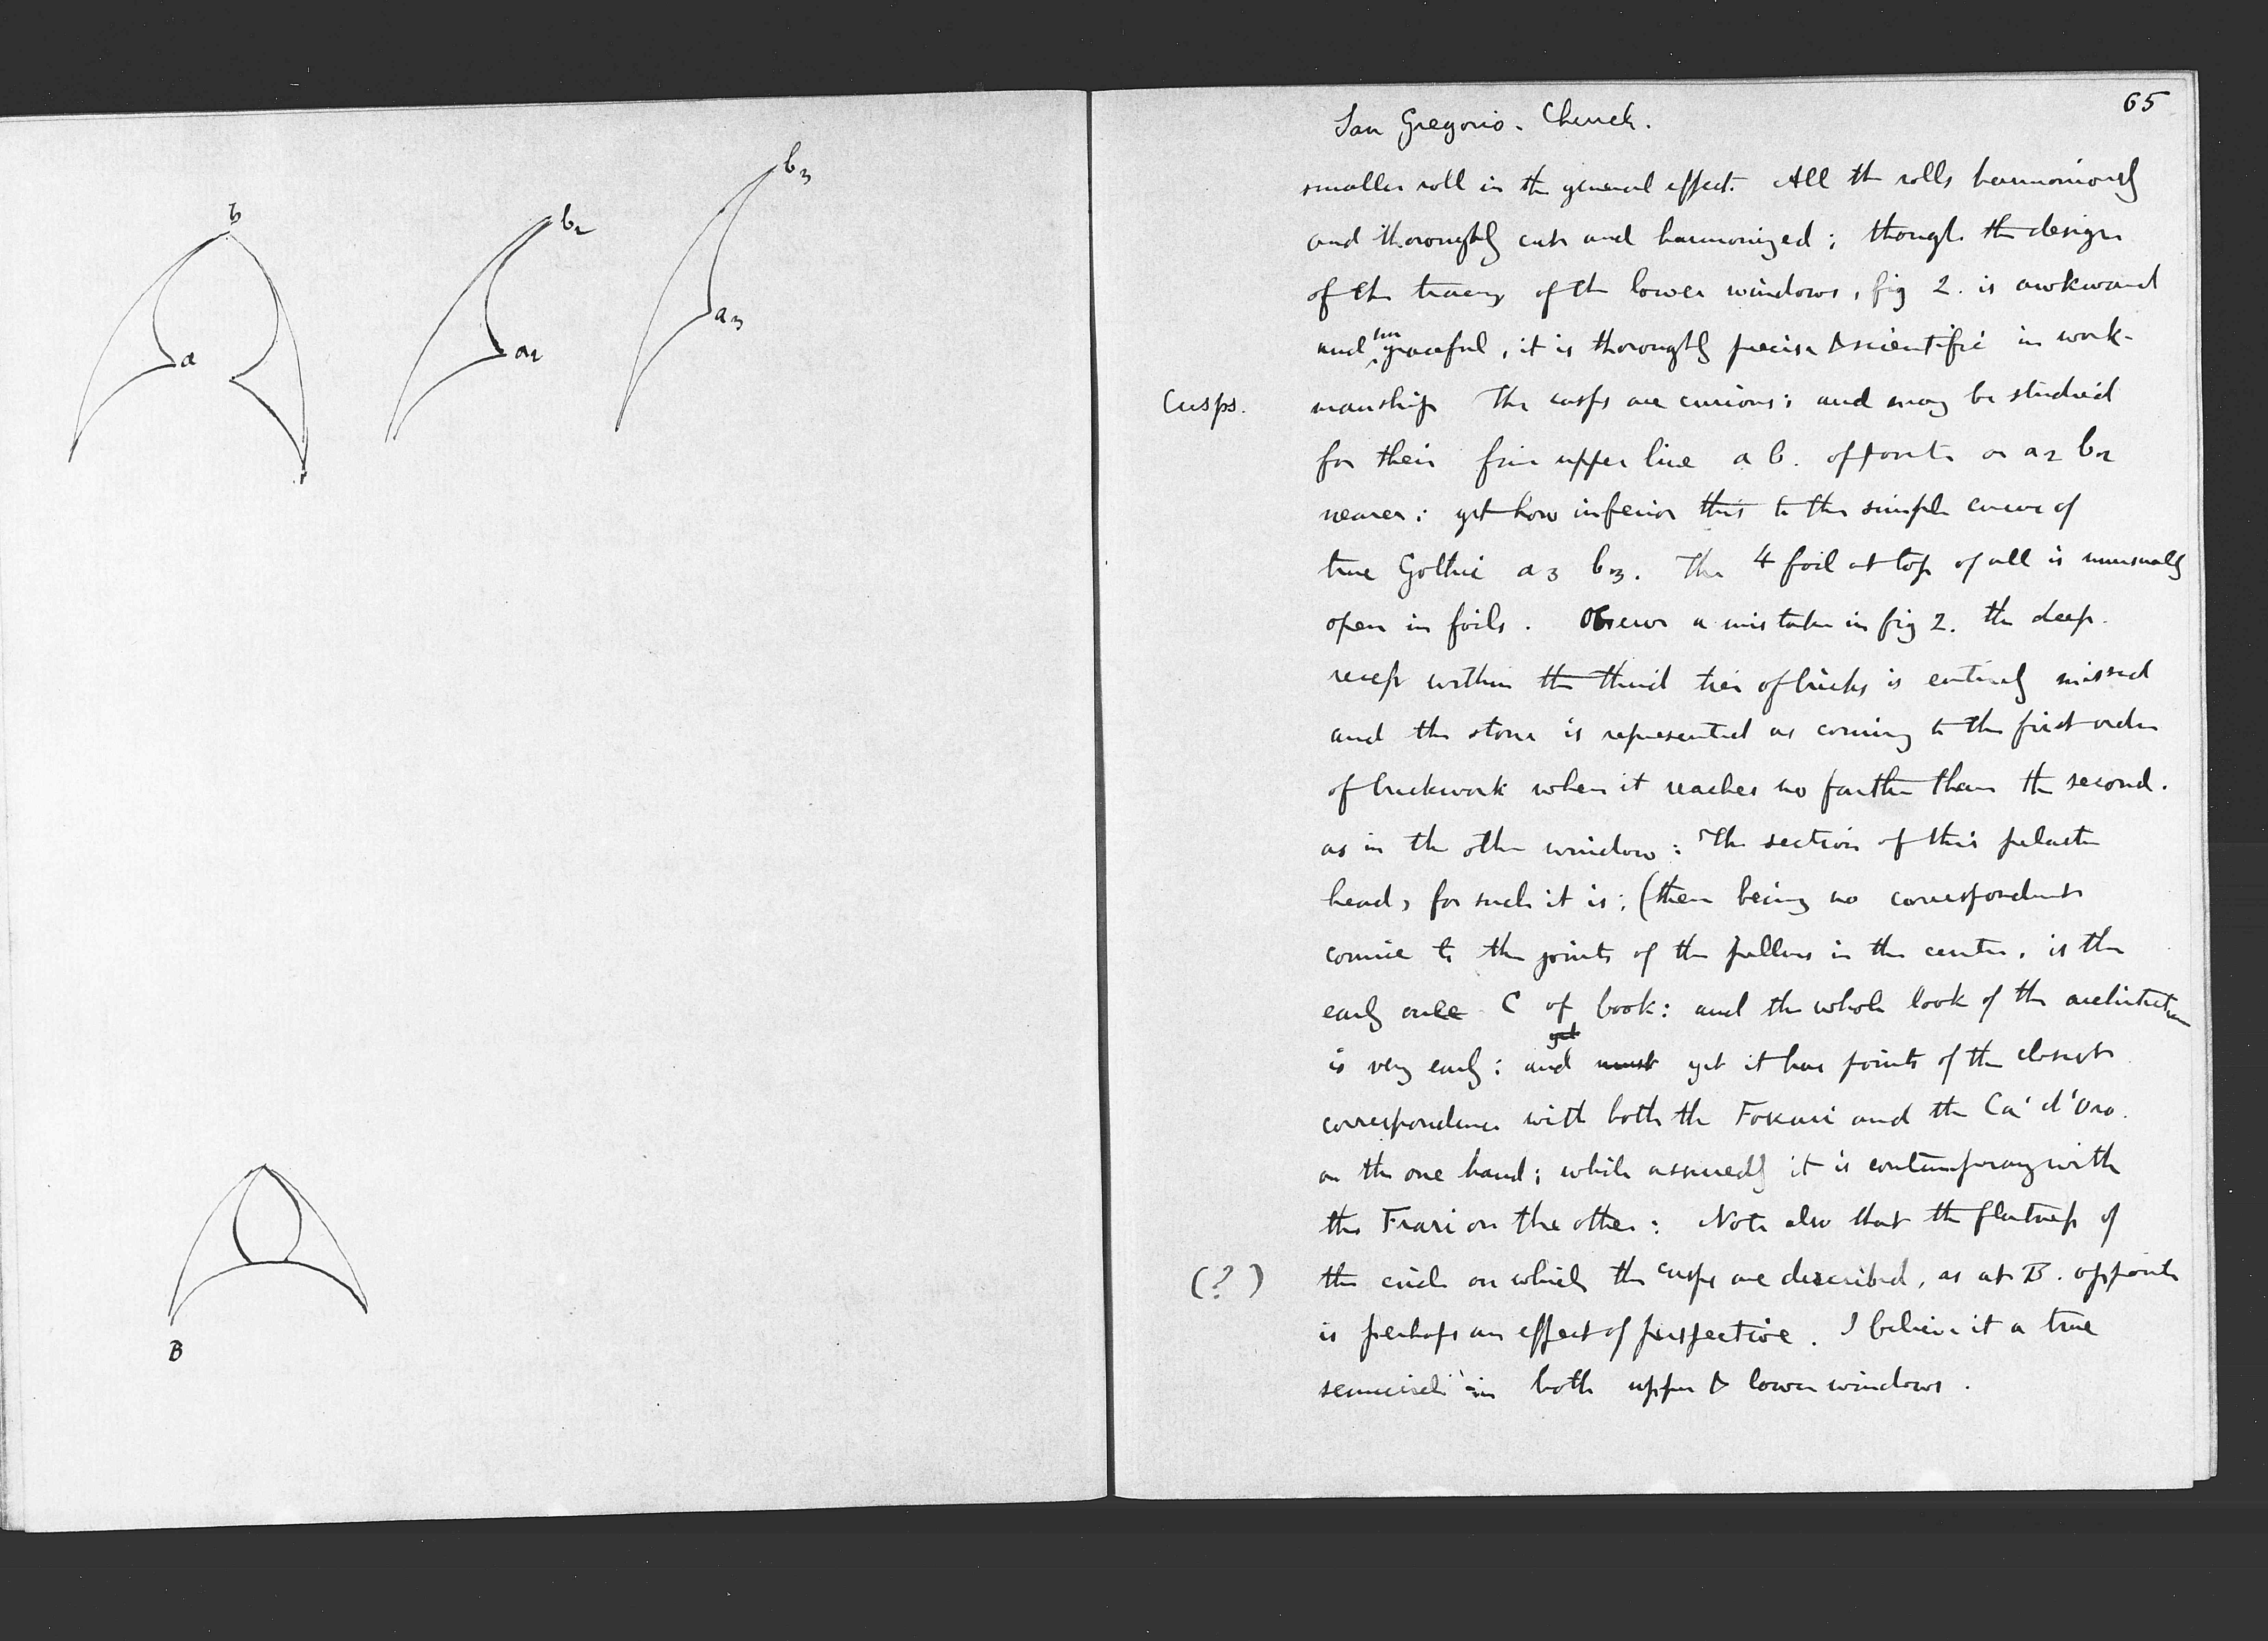 b
a
b2
a2
b3
a3
B
65
San Gregorio. Church.
smaller roll in the general effect. All the rolls harmoniously
and thoroughly cut and harmonized; though the design
of the tracery of the lower windows, fig 2. is awkward
and ungraceful, it is thoroughly precise & scientific in work-
Cusps.
manship The cusps are curious; and may be studied
for their fine upper line a b. opposite or a2 b2
nearer: yet how inferior this to the simple curve of
true Gothic a3 b3. The 4 foil at top of all is unusually
open in foils. Observe a mistake in fig 2. the deep.
recess within the third tier of bricks is entirely missed
and the stone is represented as coming to the first order
of brickwork when it reaches no farther than the second.
as in the other window: The section of this pilaster
head, for such it is; (there being no correspondent
cornice to the joints of the pillars in the center, is the
early one C of book: and the whole look of the architecture
yet
is very early: and must yet it has points of the closest
correspondence with both the Foscari and the Ca' d'Oro.
on the one hand; while assuredly it is contemporary with
the Frari on the other: Note also that the flatness of
(?)
the circle on which the cusps are described, as at B. opposite
is perhaps an effect of perspective. I believe it a true
semicircle in both upper & lower windows.